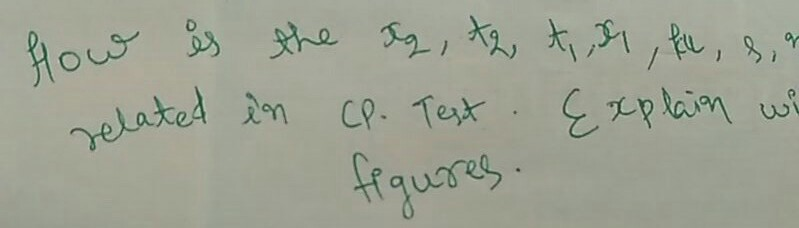 How is the x2, t2, t1, x1, fu, s, r
related in CP. Test. Explain wi
figures.